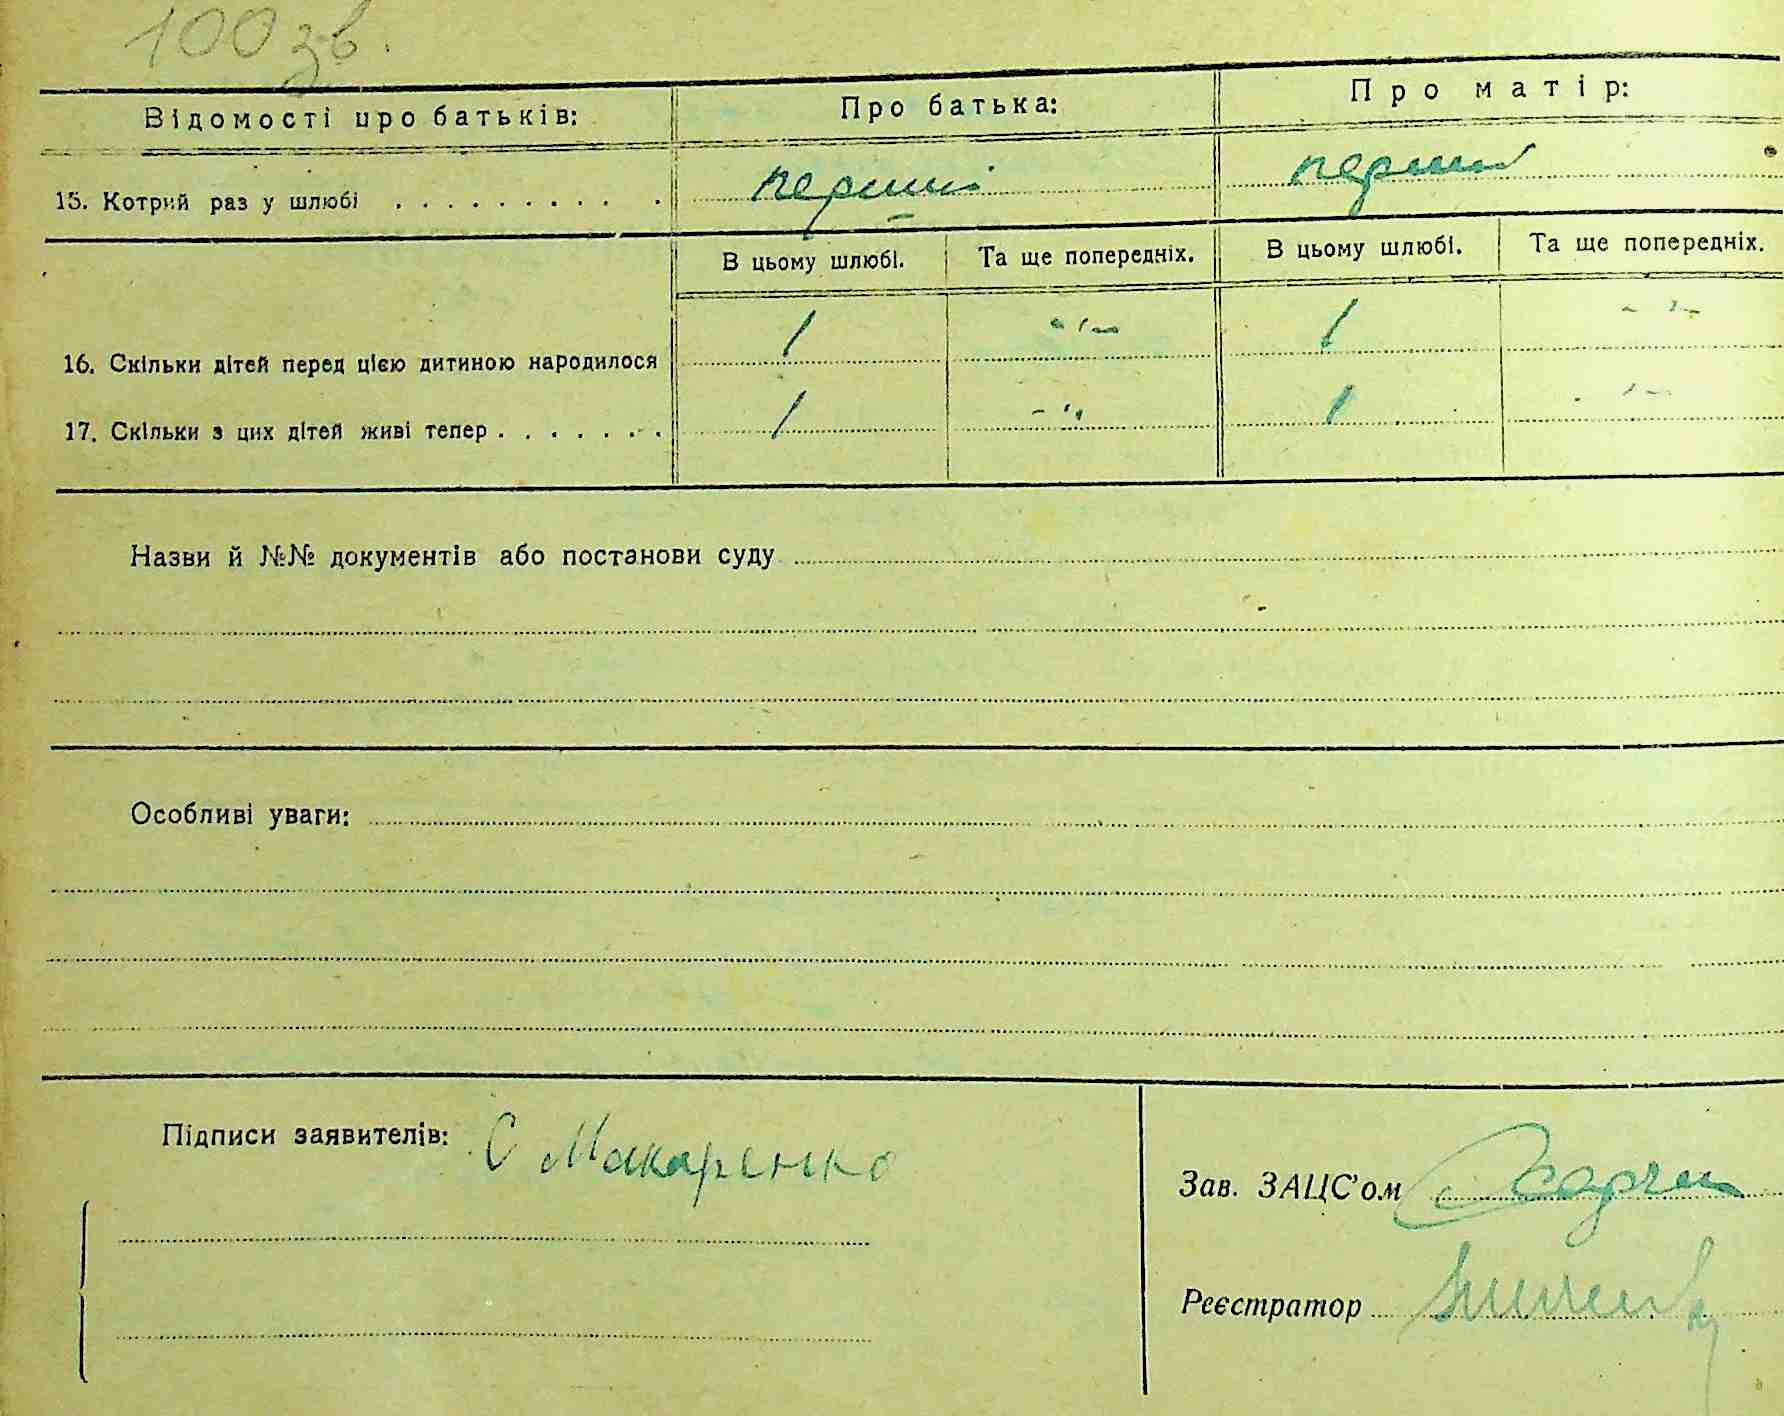 100 зв.
Відомості про батьків: Про батька: Про матір:
15. Котрий раз у шлюбі . . . . . . . . . . перший перший
В цьому шлюбі. Та ще попередніх. В цьому шлюбі. Та ще попередніх.
16. Скільки дітей перед цією дитиною народилося 1 -"- 1 -"-
17. Скільки з цих дітей живі тепер . . . . . . . 1 -"- 1 -"-
Назви й №№ документів або постанови суду
Особливі уваги:
Підписи заявителів: С Макаренко
Зав. ЗАЦС'ом
Реєстратор